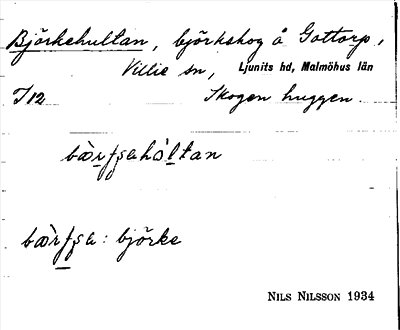 Björkehultan, björkskog å Gottorp,
Villie sn, Ljunits hd, Malmöhus län
I12 Skogen huggen.
bæ̀rfsahòltan
bæ̀rfsa : björke
NILS NILSSON 1934